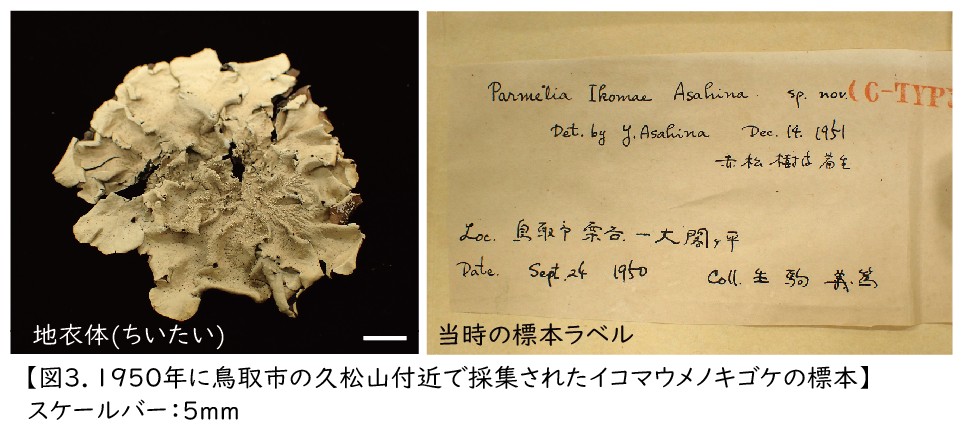 地衣体(ちいたい)
Parmelia Ikomae Asahina sp. nov. (C-TYPE
Det. by Y. Asahina Dec. 14. 1951
赤松樹皮着生
Loc. 鳥取市栗谷 — 太閤ヶ平
Date. Sept. 24 1950 Coll. 生駒義篤
当時の標本ラベル
【図3. 1950年に鳥取市の久松山付近で採集されたイコマウメノキゴケの標本】
スケールバー:5mm